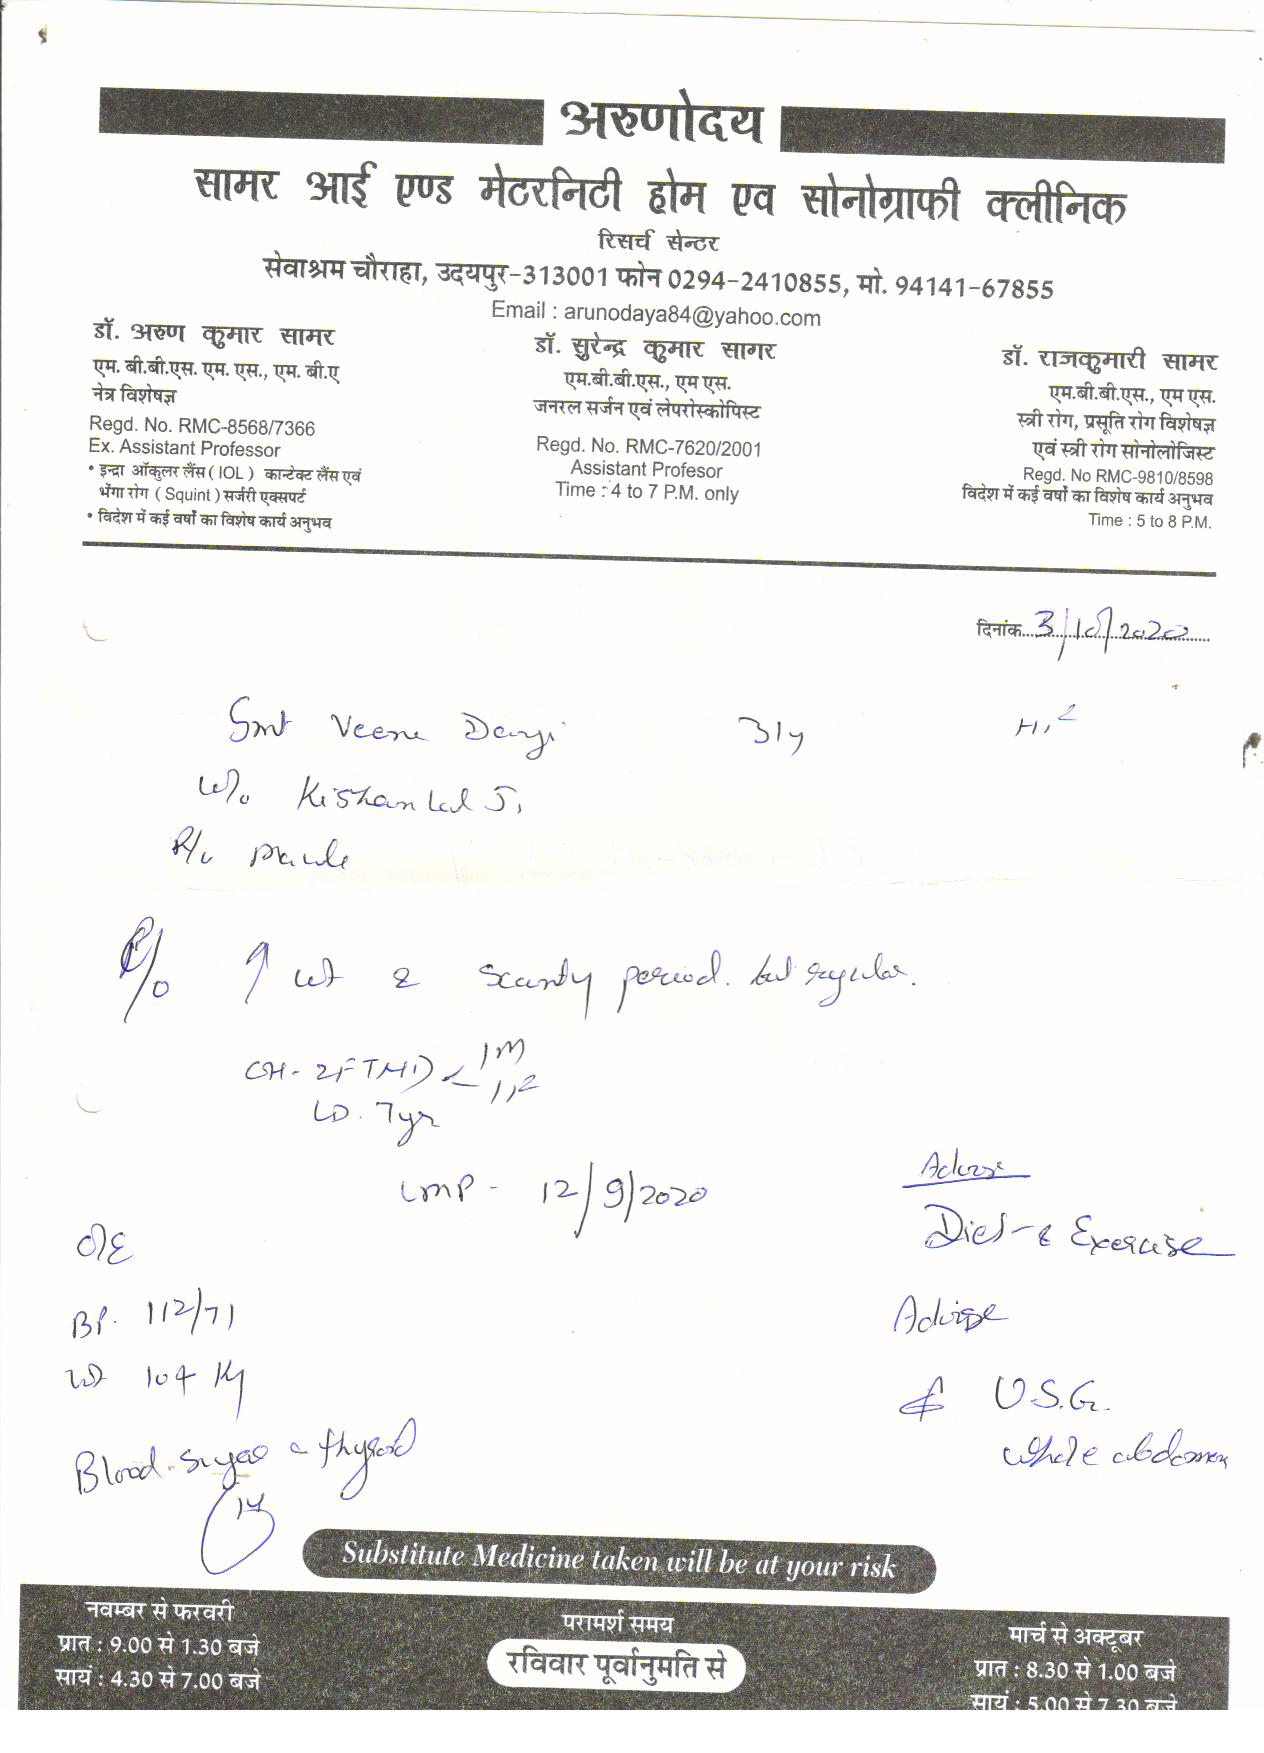 अरुणोदय
सामर आई एण्ड मेटरनिटी होम एव सोनोग्राफी क्लीनिक
रिसर्च सेन्टर
सेवाश्रम चौराहा, उदयपुर-313001 फोन 0294-2410855, मो. 94141-67855
Email : arunodaya84@yahoo.com
डॉ. अरुण कुमार सामर
एम. बी.बी.एस. एम. एस., एम. बी.ए
नेत्र विशेषज्ञ
Regd. No. RMC-8568/7366
Ex. Assistant Professor
• इन्द्रा ऑकुलर लैंस ( IOL ) कान्टेक्ट लैंस एवं
भेंगा रोग ( Squint ) सर्जरी एक्सपर्ट
• विदेश में कई वर्षों का विशेष कार्य अनुभव
डॉ. सुरेन्द्र कुमार सागर
एम.बी.बी.एस., एम एस.
जनरल सर्जन एवं लेपरोस्कोपिस्ट
Regd. No. RMC-7620/2001
Assistant Profesor
Time : 4 to 7 P.M. only
डॉ. राजकुमारी सामर
एम.बी.बी.एस., एम एस.
स्त्री रोग, प्रसूति रोग विशेषज्ञ
एवं स्त्री रोग सोनोलोजिस्ट
Regd. No RMC-9810/8598
विदेश में कई वर्षों का विशेष कार्य अनुभव
Time : 5 to 8 P.M.
दिनांक 3/10/2020
Smt Veena Dangi 31y
W/o Kishan Lal Ji
R/o
↑ wt & scanty period. but regular.
OH - 2FTND < 1M
LD. 7yr
LMP - 12/9/2020
O/E
BP. 112/71
Wt 104 Kg
Blood sugar & thyroid
Advise
Diet & Exercise
Advise
U.S.G.
whole abdomen
Substitute Medicine taken will be at your risk
नवम्बर से फरवरी
प्रात : 9.00 से 1.30 बजे
सायं : 4.30 से 7.00 बजे
परामर्श समय
रविवार पूर्वानुमति से
मार्च से अक्टूबर
प्रात : 8.30 से 1.00 बजे
सायं : 5.00 से 7.30 बजे